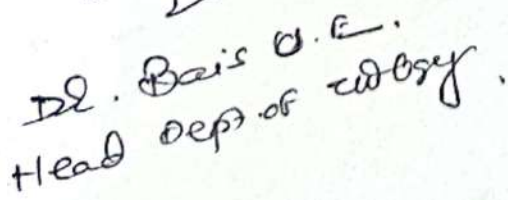 Dr. Bais U. E.
Head Dept. of Zoology.